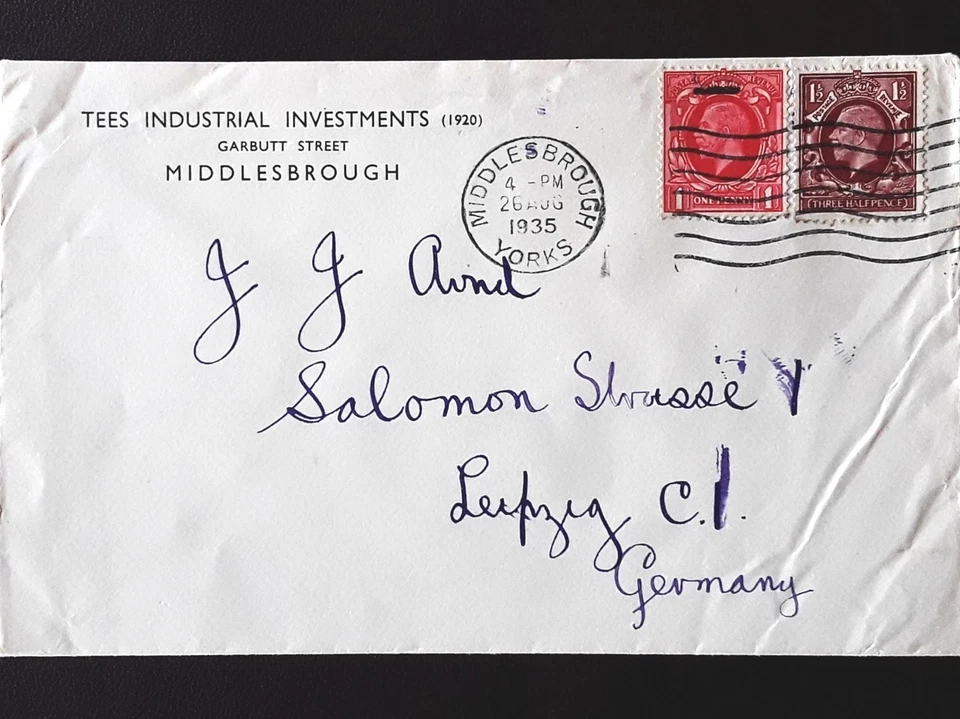 TEES INDUSTRIAL INVESTMENTS (1920)
GARBUTT STREET
MIDDLESBROUGH
MIDDLESBROUGH
4 - PM
26 AUG
1935
YORKS
1 ONE PENNY 1
1½ POSTAGE REVENUE 1½
(THREE HALFPENCE)
J J Arnd
Salomon Strasse
Leipzig C.1.
Germany